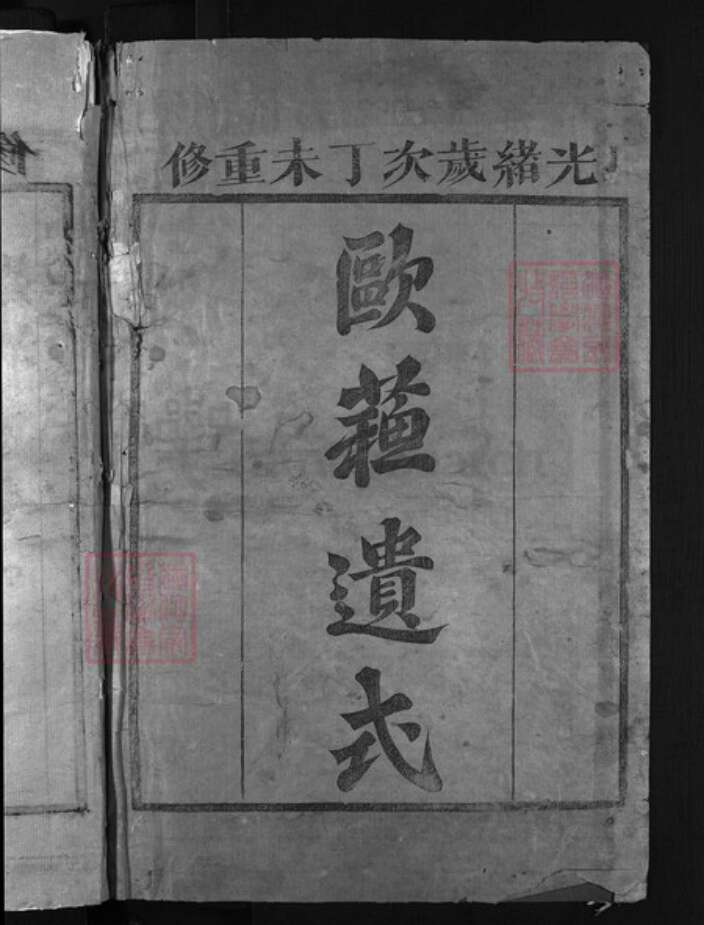 光緒歲次丁未重修
歐蘓遺式